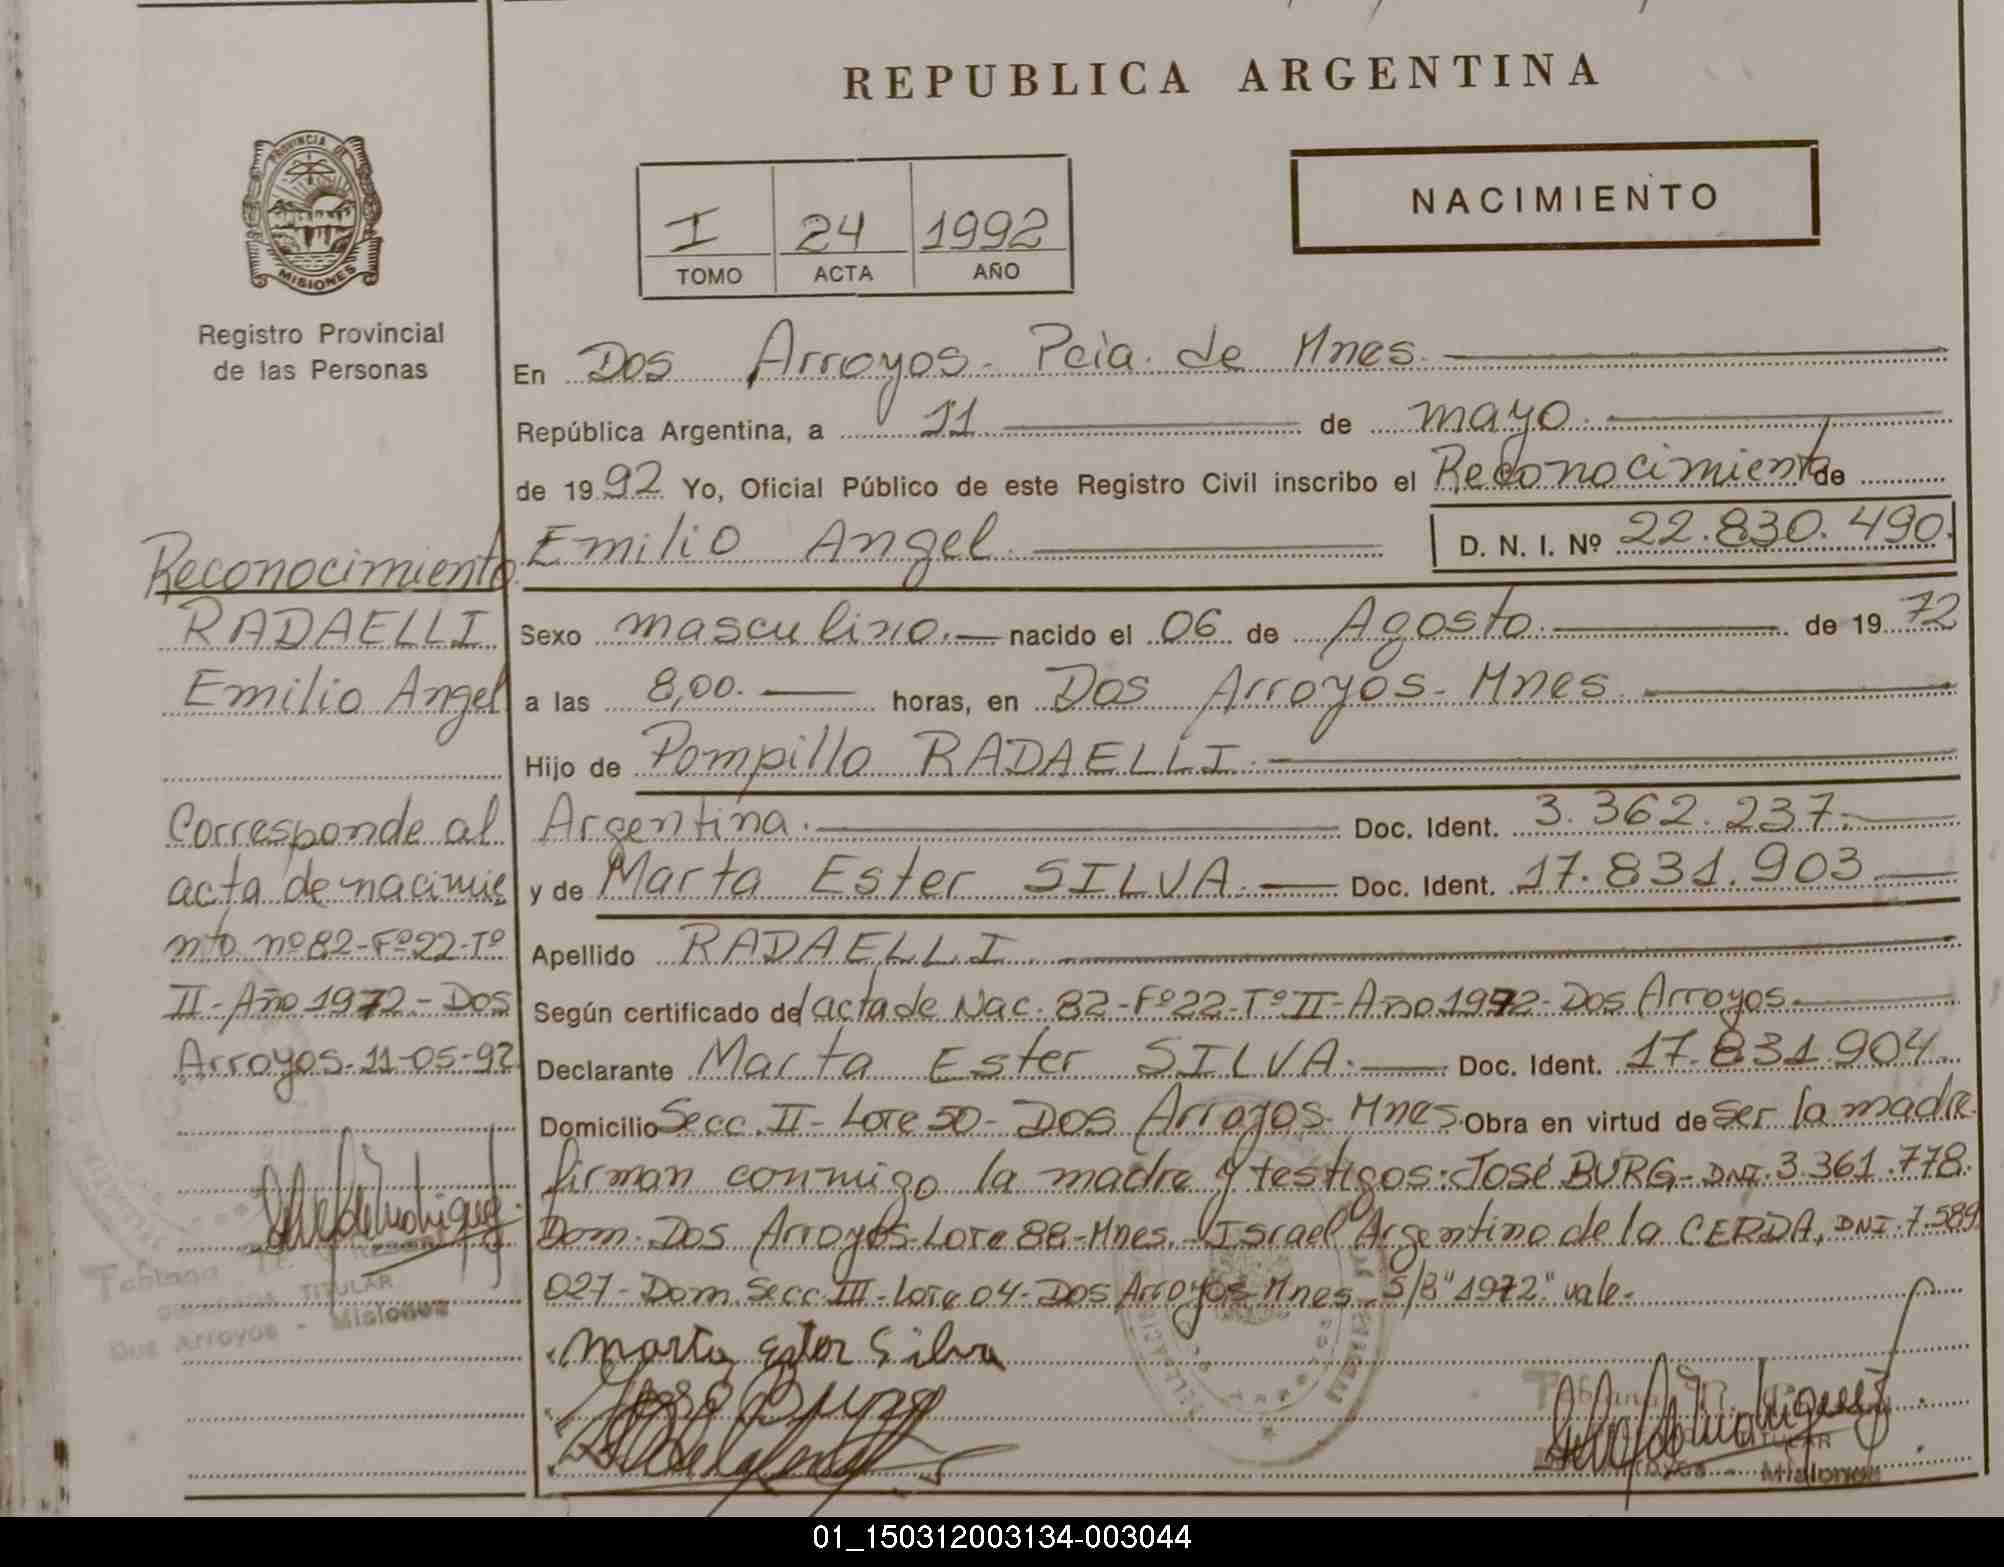 REPUBLICA ARGENTINA
NACIMIENTO
I 24 1992
TOMO ACTA AÑO
PROVINCIA DE
MISIONES
Registro Provincial
de las Personas
Reconocimiento
RADAELLI
Emilio Angel
Corresponde al
acta de nacimie
nto nº 82-Fº22-Tº
II-Año 1972-Dos
Arroyos-11-05-92
TITULAR
Dos Arroyos - Misiones
En Dos Arroyos- Pcia. de Mnes.
República Argentina, a 11 de mayo.
de 1992 Yo, Oficial Público de este Registro Civil inscribo el Reconocimiento de
Emilio Angel D. N. I. Nº 22.830.490.
Sexo masculino.— nacido el 06 de Agosto. de 1972
a las 8,00.— horas, en Dos Arroyos- Mnes.
Hijo de Pompillo RADAELLI.
Argentina. Doc. Ident. 3.362.237.
y de Marta Ester SILVA.— Doc. Ident. 17.831.903
Apellido RADAELLI
Según certificado de acta de Nac. 82-Fº22-TºII-Año 1972-Dos Arroyos.
Declarante Marta Ester SILVA.— Doc. Ident. 17.831.904
Domicilio Secc. II- Lote 50- Dos Arroyos- Mnes. Obra en virtud de ser la madre.
firman conmigo la madre y testigos: José BURG- DNI. 3.361.778.
Dom. Dos Arroyos-Lote 88-Mnes.-Israel Argentino de la CERDA, DNI. 7.589
027- Dom. Secc. III-Lote 04-Dos Arroyos Mnes. S/B "1972" vale.
Marta Ester Silva
TITULAR
Misiones
01_150312003134-003044